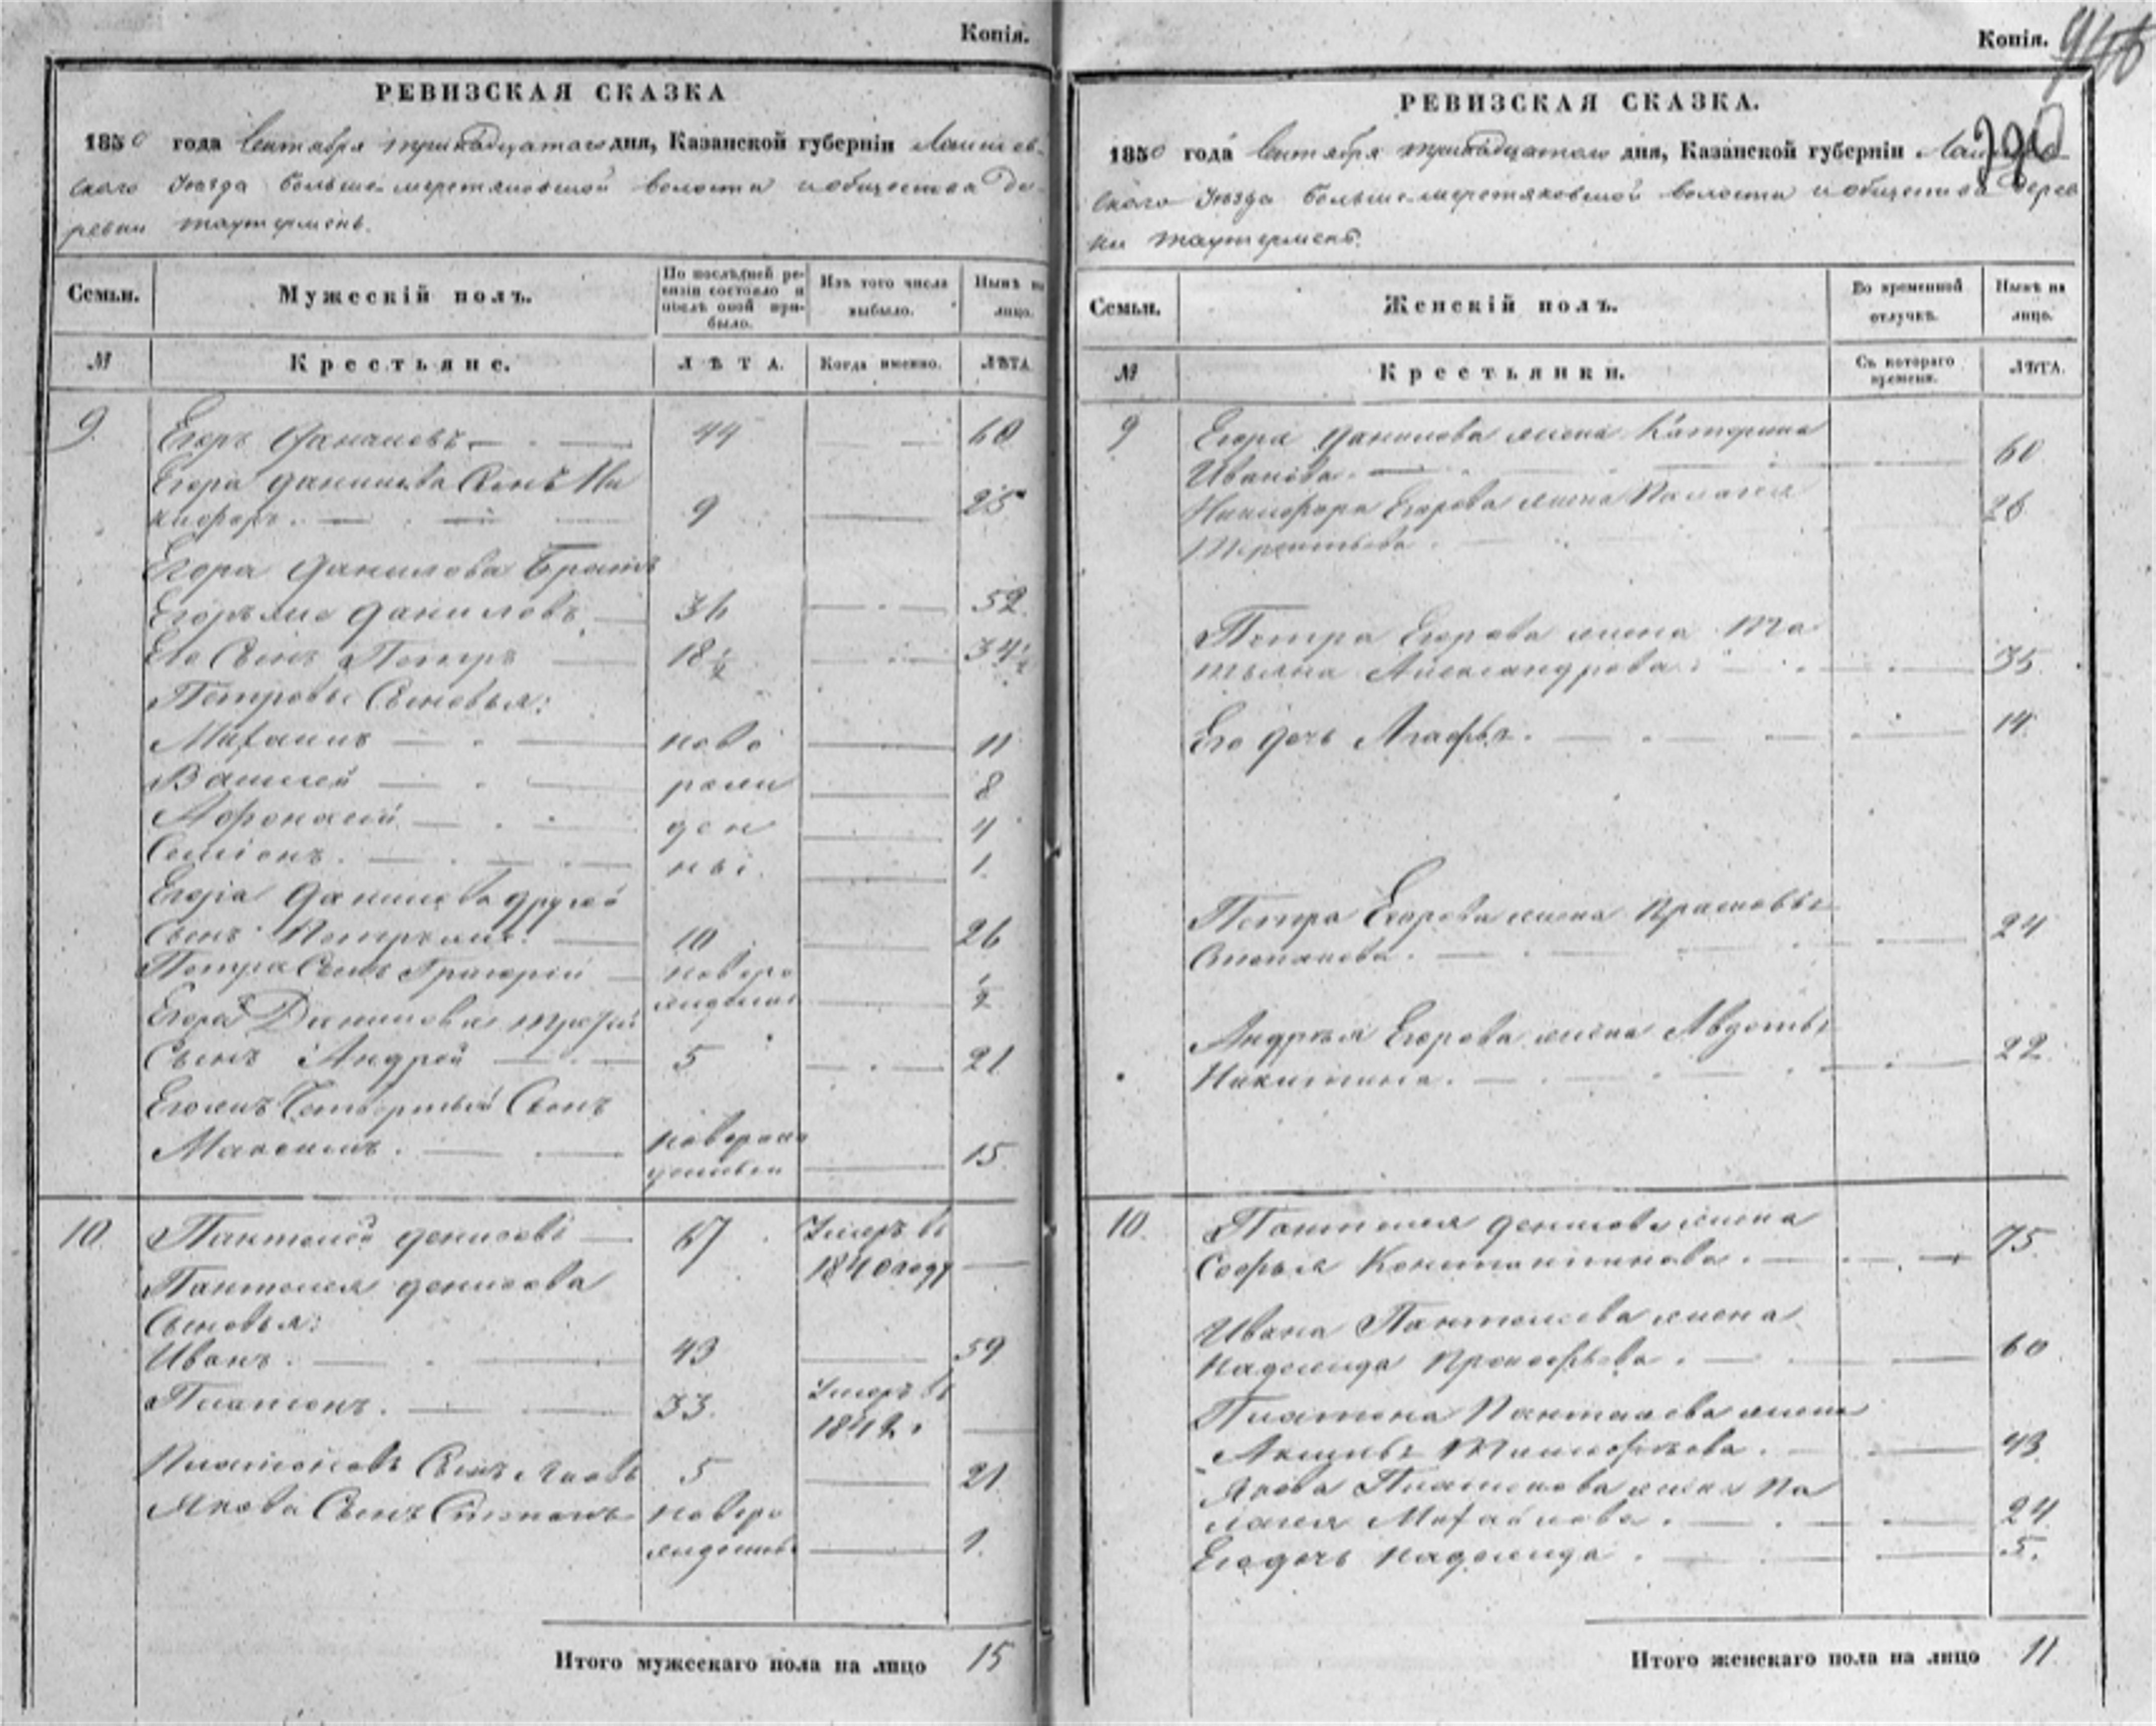 Копія.
РЕВИЗСКАЯ СКАЗКА
1850 года Сентября тритцатаго дня, Казанской губерніи Лаишев-
скаго Уѣзда больше-меретяковской волости и общества де-
ревни таутермень.
Семьи.
Мужескій полъ.
По послѣдней ре-
визіи состояло и
послѣ оной при-
было.
Изъ того числа
выбыло.
Нынѣ на
лицо.
№
Крестьяне.
ЛѢТА.
Когда именно.
ЛѢТА.
9. Егоръ Даниловъ 44 60
Егора данилова Сынъ Ни
кифоръ. 9 25
Егора Данилова Братъ
Егоръ же Даниловъ 36 52.
Его Сынъ Петръ 18 1/2 34 1/2
Петровы Сыновья:
Михаилъ ново 11
Василей рожи 8
Афонасей ден 4
Семіонъ. ны. 1.
Егора Данилова другой
Сынъ Петръ же. 10 26
Петра Сынъ Григорій новоро 1/2
жденный
Егора Данилова третей
Сынъ Андрей 5 21
Егожъ Четвертый Сынъ
Максимъ. новорож 15
10. Пантелей денисовъ 67 Умеръ въ
1840 году
Пантелея денисова
Сыновья:
Иванъ. 43 59
Платонъ. 33. Умеръ въ
1842.
Платоновъ Сынъ Яковъ 5 21
Якова Сынъ Степанъ новоро
жденный 1.
Итого мужескаго пола на лицо 15
Копія.
РЕВИЗСКАЯ СКАЗКА.
1850 года Сентября тритцатаго дня, Казанской губерніи
скаго Уѣзда больше-меретяковской волости и общества дерев
ни таутермень.
Семьи.
Женскій полъ.
Во временной
отлучкѣ.
Нынѣ на
лицо.
№
Крестьянки.
Съ котораго
времени.
ЛѢТА.
9 Егора Данилова жена Катерина
Иванова. 60
Никифора Егорова жена Палагея 26
Терентьева.
Петра Егорова жена Та
тьяна Александрова. 35
Его дочь Агафья. 14.
Петра Егорова жена Прасковья 24
Степанова.
Андрея Егорова жена Авдотья 22.
Никитина.
10. Пантелея денисова жена
Софья Константинова. 75
Ивана Пантелеева жена
Надежда Прокофьева. 60
Платона Пантелеева жена
Тимофеева. 43.
Якова Платонова жена Па
лагея Михайлова. 24
Его дочь Надежда. 5.
Итого женскаго пола на лицо 11